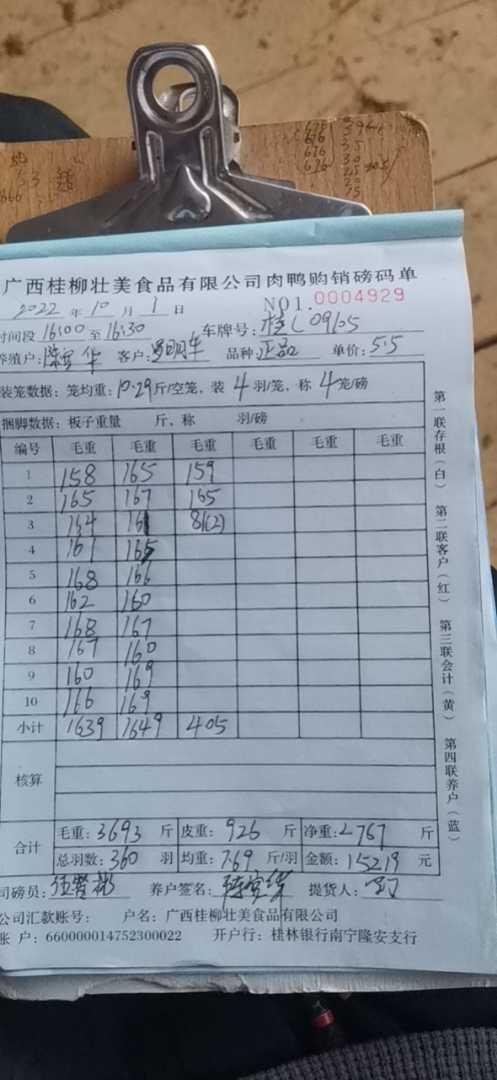 广西桂柳壮美食品有限公司肉鸭购销磅码单
2022 年 10 月 1 日 NO1. 0004929
时间段 16:00 至 16:30 车牌号: 桂L 09105
养殖户: 陈 华 客户: 品种: 正品 单价: 5.5
装笼数据: 笼均重: 10.29 斤/空笼, 装 4 羽/笼, 称 4 笼/磅
捆脚数据: 板子重量 斤, 称 羽/磅
编号 毛重 毛重 毛重 毛重 毛重 毛重
1 158 165 159
2 165 167 165
3 164 161 81(2)
4 161 165
5 168 166
6 162 160
7 168 167
8 167 160
9 160 169
10 166 169
小计 1639 1649 405
核算
合计 毛重: 3693 斤 皮重: 926 斤 净重: 2767 斤
总羽数: 360 羽 均重: 7.69 斤/羽 金额: 15219 元
司磅员: 养户签名: 提货人:
公司汇款账号: 户名: 广西桂柳壮美食品有限公司
账 户: 660000014752300022 开户行: 桂林银行南宁隆安支行
第一联存根(白) 第二联客户(红) 第三联会计(黄) 第四联养户(蓝)